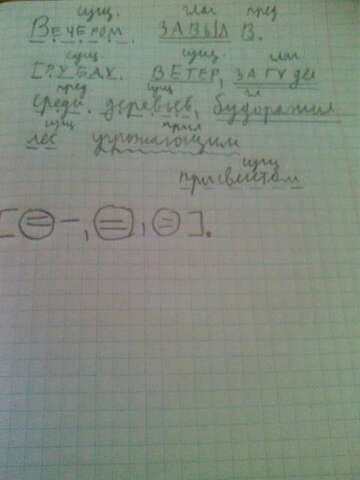 сущ. глаг пред
Вечером завыл в.
сущ сущ. глаг
трубах. ветер, загудел
пред сущ гл
среди деревьев, будоражил
сущ прил
лес угрожающим
сущ
присвистом
[= –, =, =].